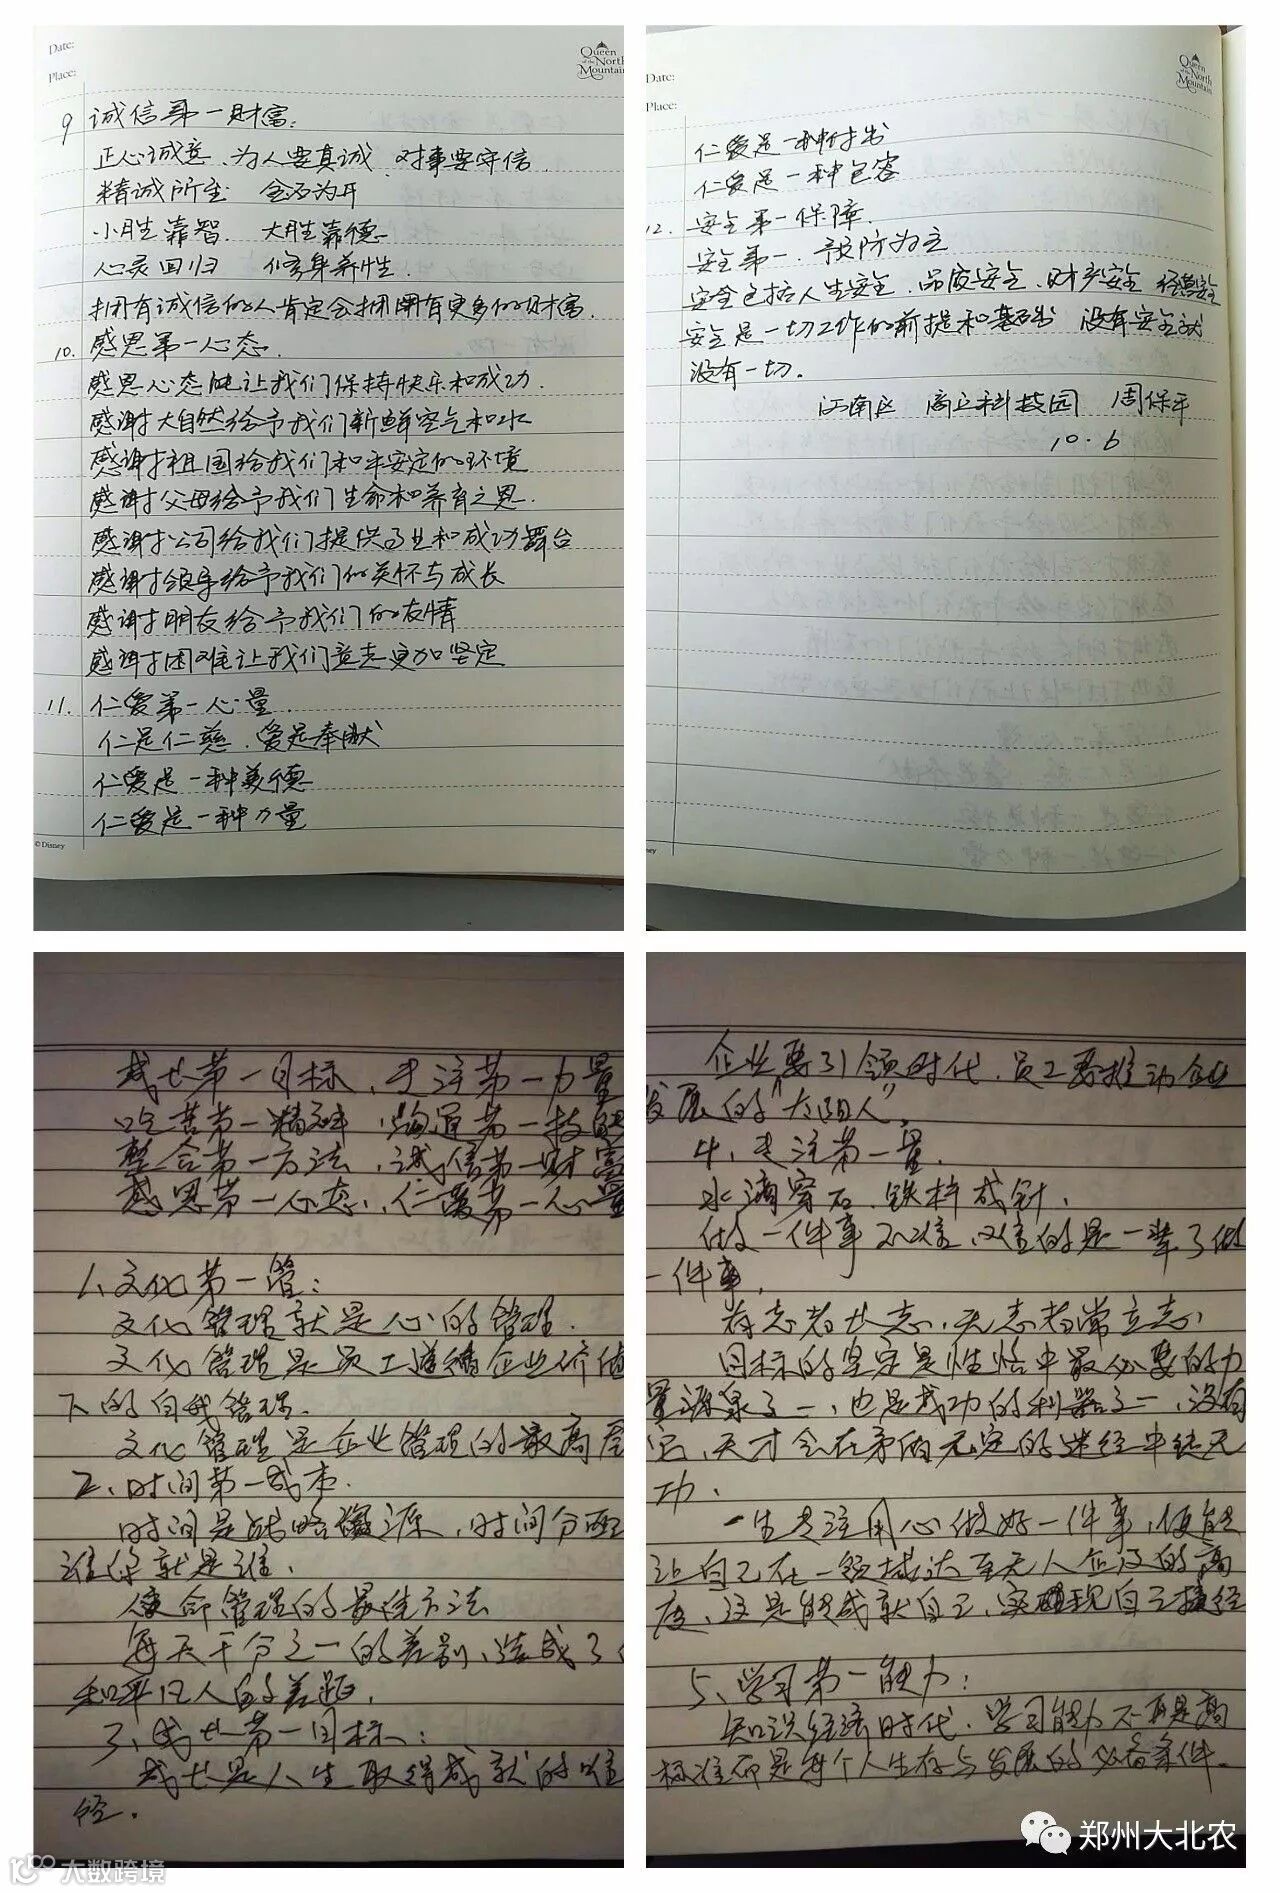 Date:
Place:
Queen
of the North
Mountain
9 诚信第一财富:
正心诚意、为人要真诚、对事要守信
精诚所至 金石为开
小胜靠智、大胜靠德
心灵回归 修身养性.
拥有诚信的人肯定会拥有更多的财富.
10. 感恩第一心态.
感恩心态能让我们保持快乐和成功.
感谢大自然给予我们新鲜空气和水
感谢祖国给我们和平安定的环境
感谢父母给予我们生命和养育之恩.
感谢公司给我们提供了业和成功舞台
感谢领导给予我们的关怀与成长
感谢朋友给予我们的友情
感谢困难让我们意志更加坚定
11. 仁爱第一心量.
仁是仁慈.爱是奉献
仁爱是一种美德
仁爱是一种力量
©Disney
Date:
Place:
Queen
of the North
Mountain
仁爱是一种付出
仁爱是一种包容
12. 安全第一保障.
安全第一.预防为主
安全包括人生安全、品质安全、财产安全 经营安全
安全是一切工作的前提和基础 没有安全就
没有一切.
江南区 商丘科技园 周保平
10.6
ney
成长第一目标、专注第一力量
吃苦第一精神、沟通第一技能
整合第一方法、诚信第一财富
感恩第一心态、仁爱第一心量
1、文化第一管:
文化管理就是心的管理.
文化管理是员工遵循企业价值
下的自我管理.
文化管理是企业管理的最高层
2、时间第一成本.
时间是战略资源,时间分配
谁你就是谁.
使命管理的最佳方法
每天千分之一的差别,造成了
和平凡人的差距.
3、成长第一目标:
成长是人生取得成就的唯
径.
企业要引领时代、员工要推动企业
发展的"太阳人".
4、专注第一量.
水滴穿石、铁杵成针、
做一件事不难、难的是一辈了做
一件事.
有志者长志、无志者常立志
目标的坚定是性格中最必要的力
量源泉之一、也是成功的利器之一、没有
它、天才会在矛盾无定的迷径中徒无
功.
一生专注用心做好一件事,便能
让自己在一领域达至无人企及的高
度、这是能成就自己、实现自己捷径
5、学习第一能力:
知识经济时代、学习能力不再是高
标准而是每个人生存与发展的必备条件.
郑州大北农
大数跨境